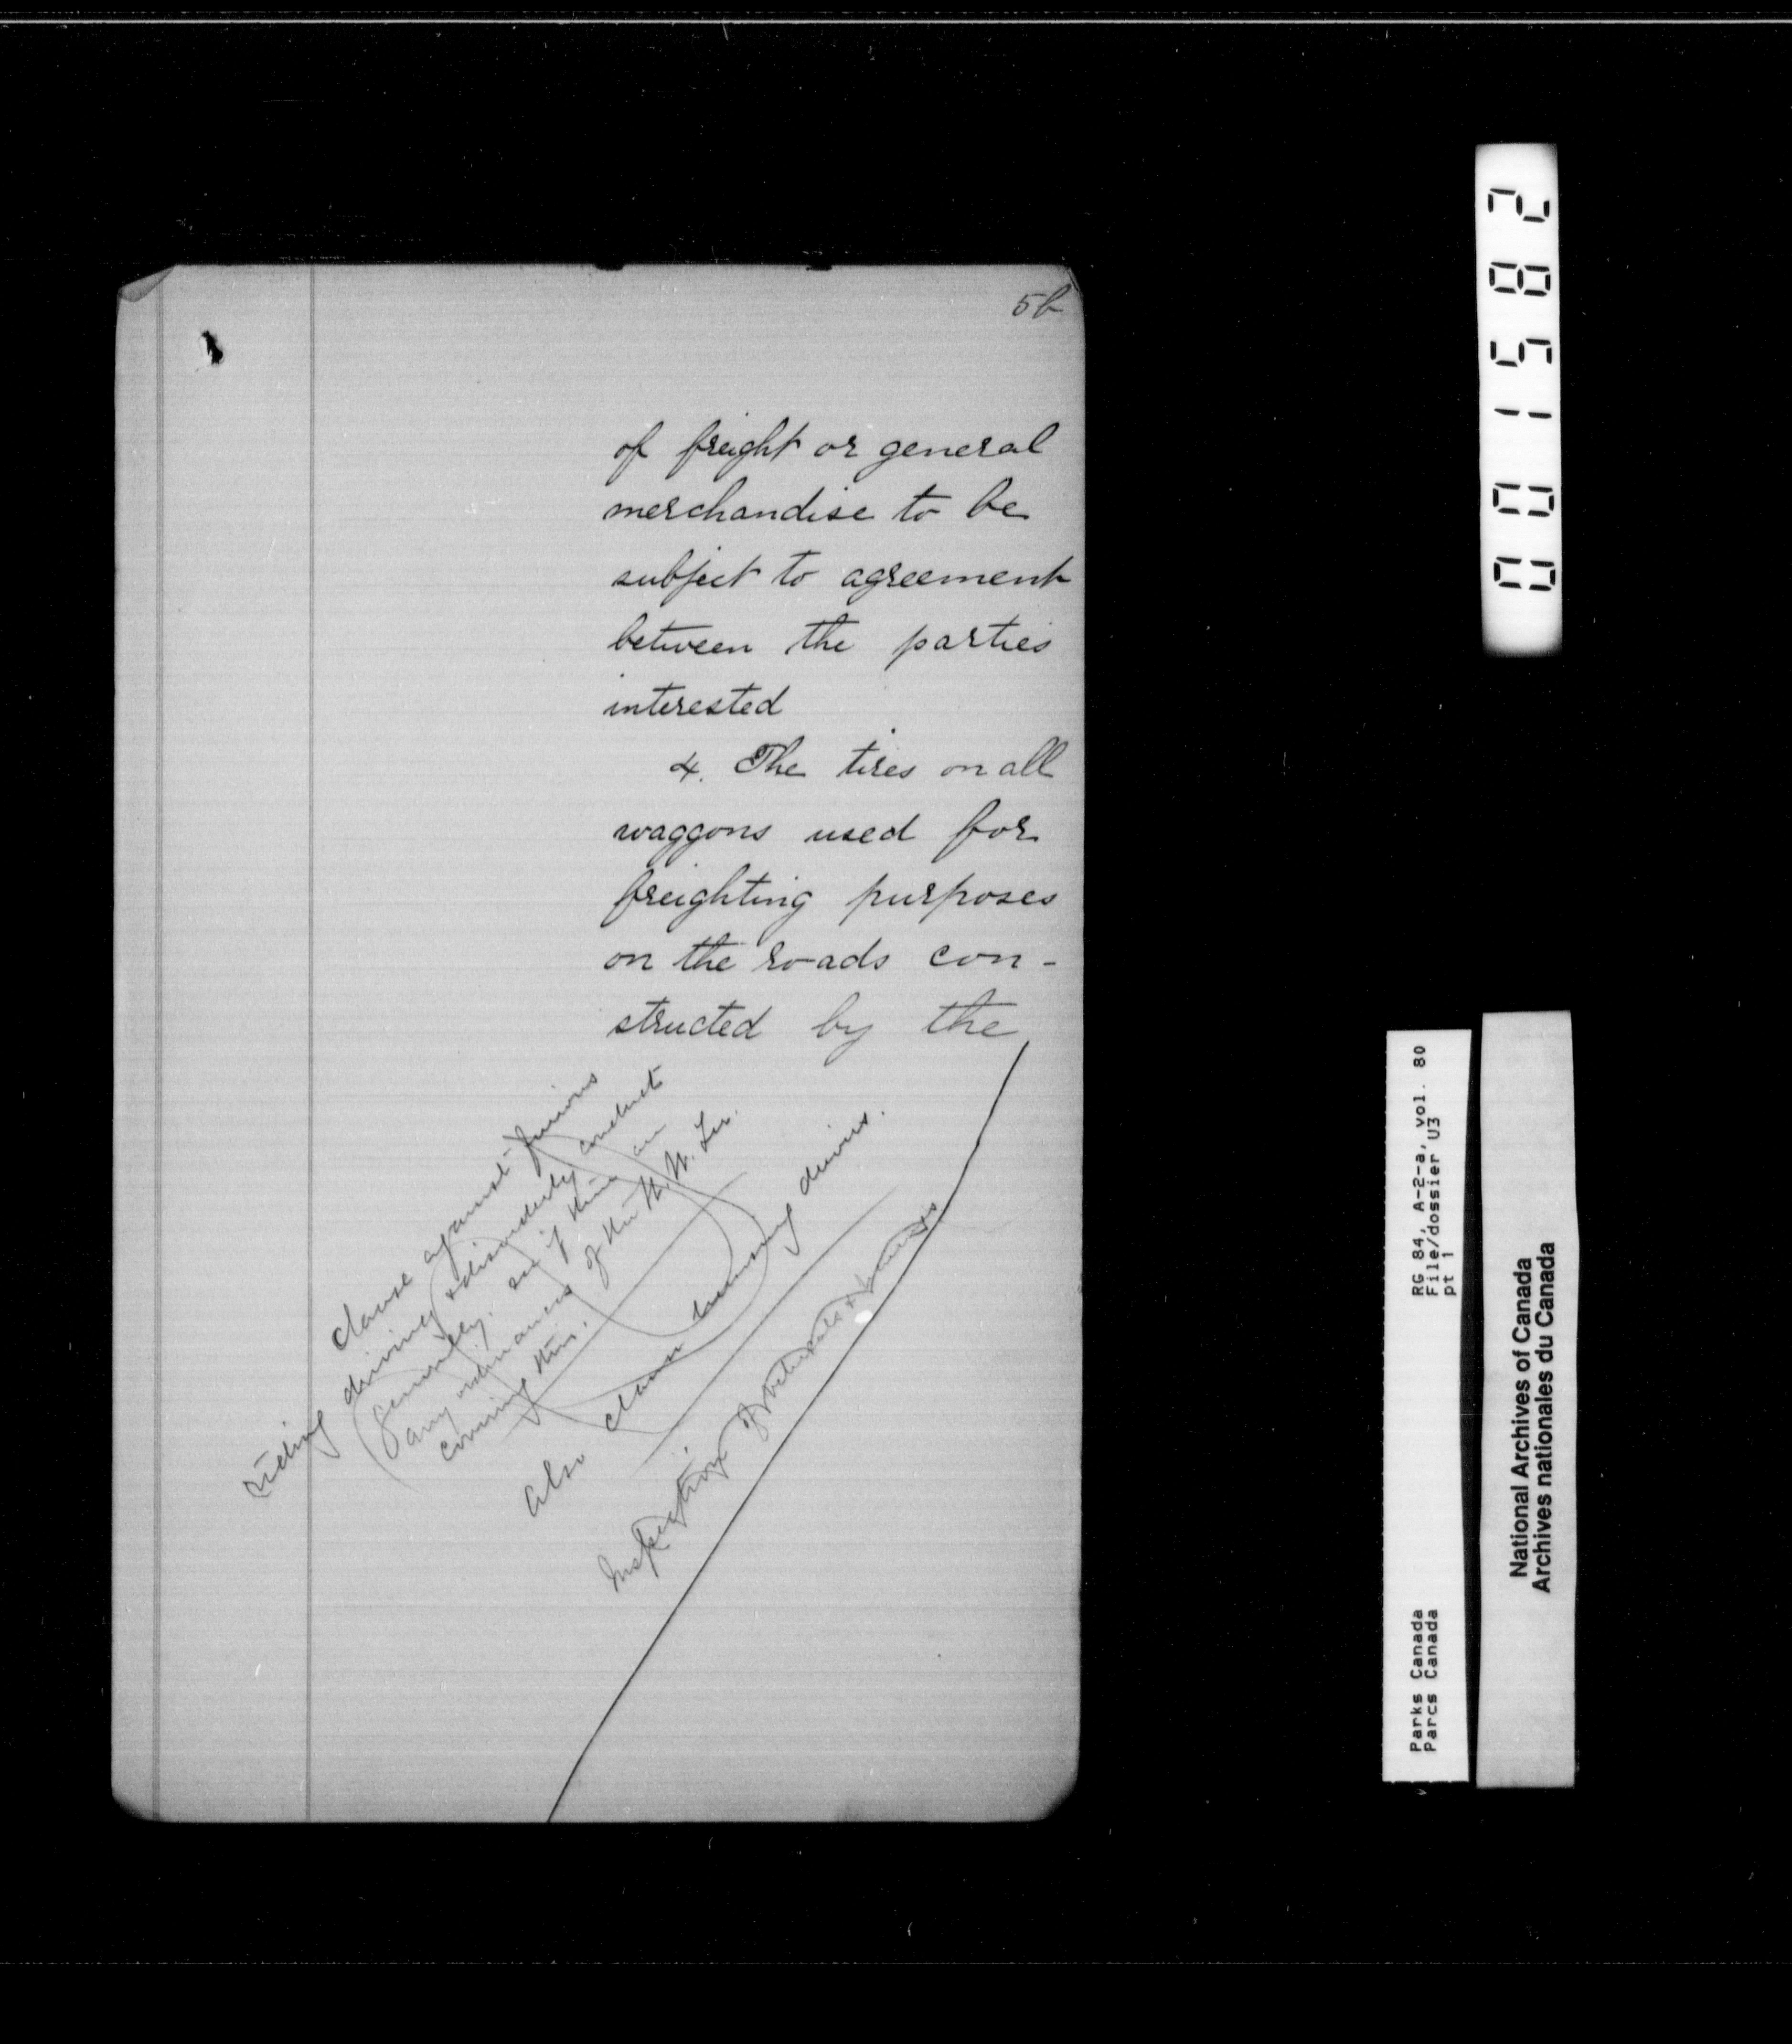 5b
of freight or general
merchandise to be
subject to agreement
between the parties
interested
4. The tires on all
waggons used for
freighting purposes
on the roads con-
structed by the
clause against furious
riding driving & disorderly conduct
generally. see if there are
any ordinances of the N.W. Ter.
covering this.
Also clause licensing drivers.
Inspection of vehicles &
001582
RG 84, A-2-a, vol. 80
File/dossier U3
pt 1
Parks Canada
Parcs Canada
National Archives of Canada
Archives nationales du Canada